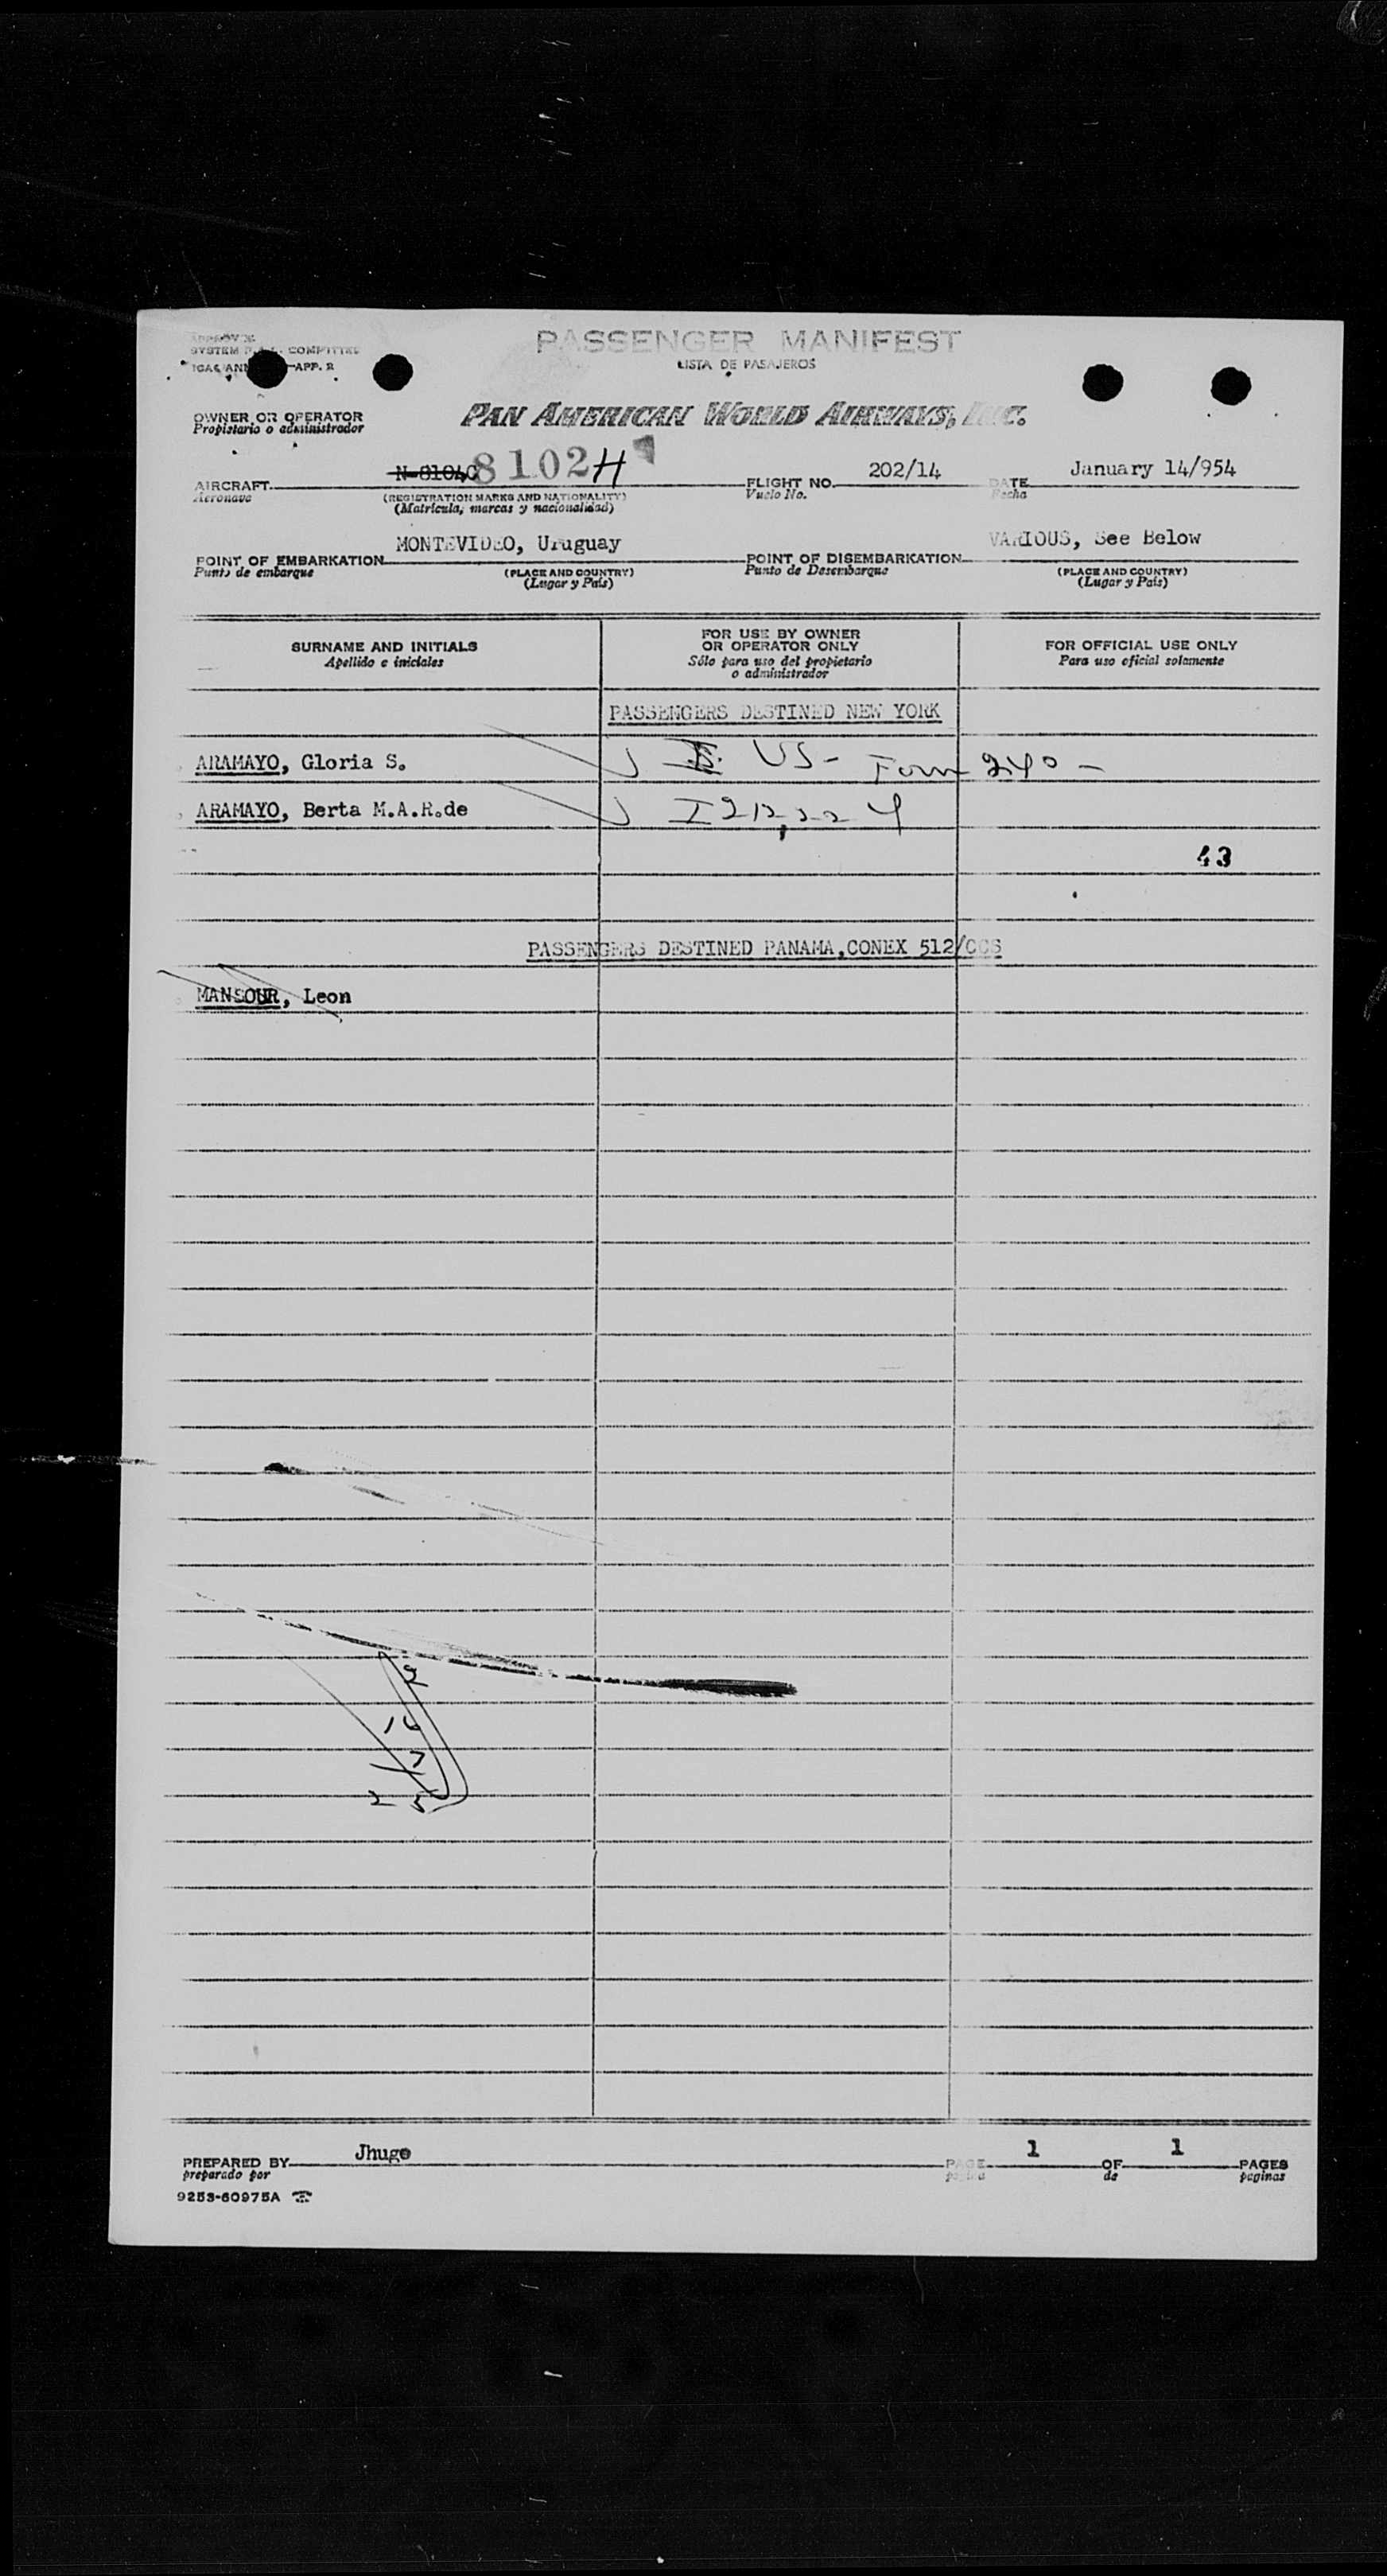 PASSENGER MANIFEST
LISTA DE PASAJEROS
SYSTEM COMMITTEE
APP. 2
OWNER OR OPERATOR
Propietario o administrador
PAN AMERICAN WORLD AIRWAYS, INC.
AIRCRAFT N-8104C 8102H FLIGHT NO. 202/14 DATE January 14/954
Aeronave (REGISTRATION MARKS AND NATIONALITY) Vuelo No. Fecha
(Matrícula, marcas y nacionalidad)
POINT OF EMBARKATION MONTEVIDEO, Uruguay POINT OF DISEMBARKATION VARIOUS, See Below
Punto de embarque (PLACE AND COUNTRY) Punto de Desembarque (PLACE AND COUNTRY)
(Lugar y País) (Lugar y País)
SURNAME AND INITIALS FOR USE BY OWNER OR OPERATOR ONLY FOR OFFICIAL USE ONLY
Apellido e iniciales Sólo para uso del propietario o administrador Para uso oficial solamente
PASSENGERS DESTINED NEW YORK
ARAMAYO, Gloria S. US- Form 240-
ARAMAYO, Berta M.A.R.de
43
PASSENGERS DESTINED PANAMA,CONEX 512/CCS
MANSOUR, Leon
PREPARED BY Jhugo PAGE 1 OF 1 PAGES
preparado por página de paginas
9253-60975A